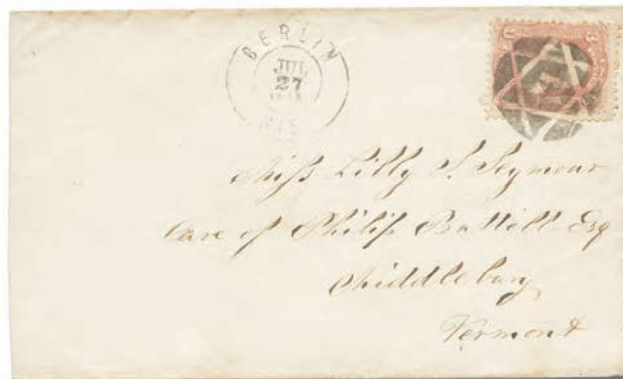 BERLIN
JUL
27
WIS
U 3
Miss Lilly S. Seymour
Care of Philip Battell Esq
Middlebury
Vermont